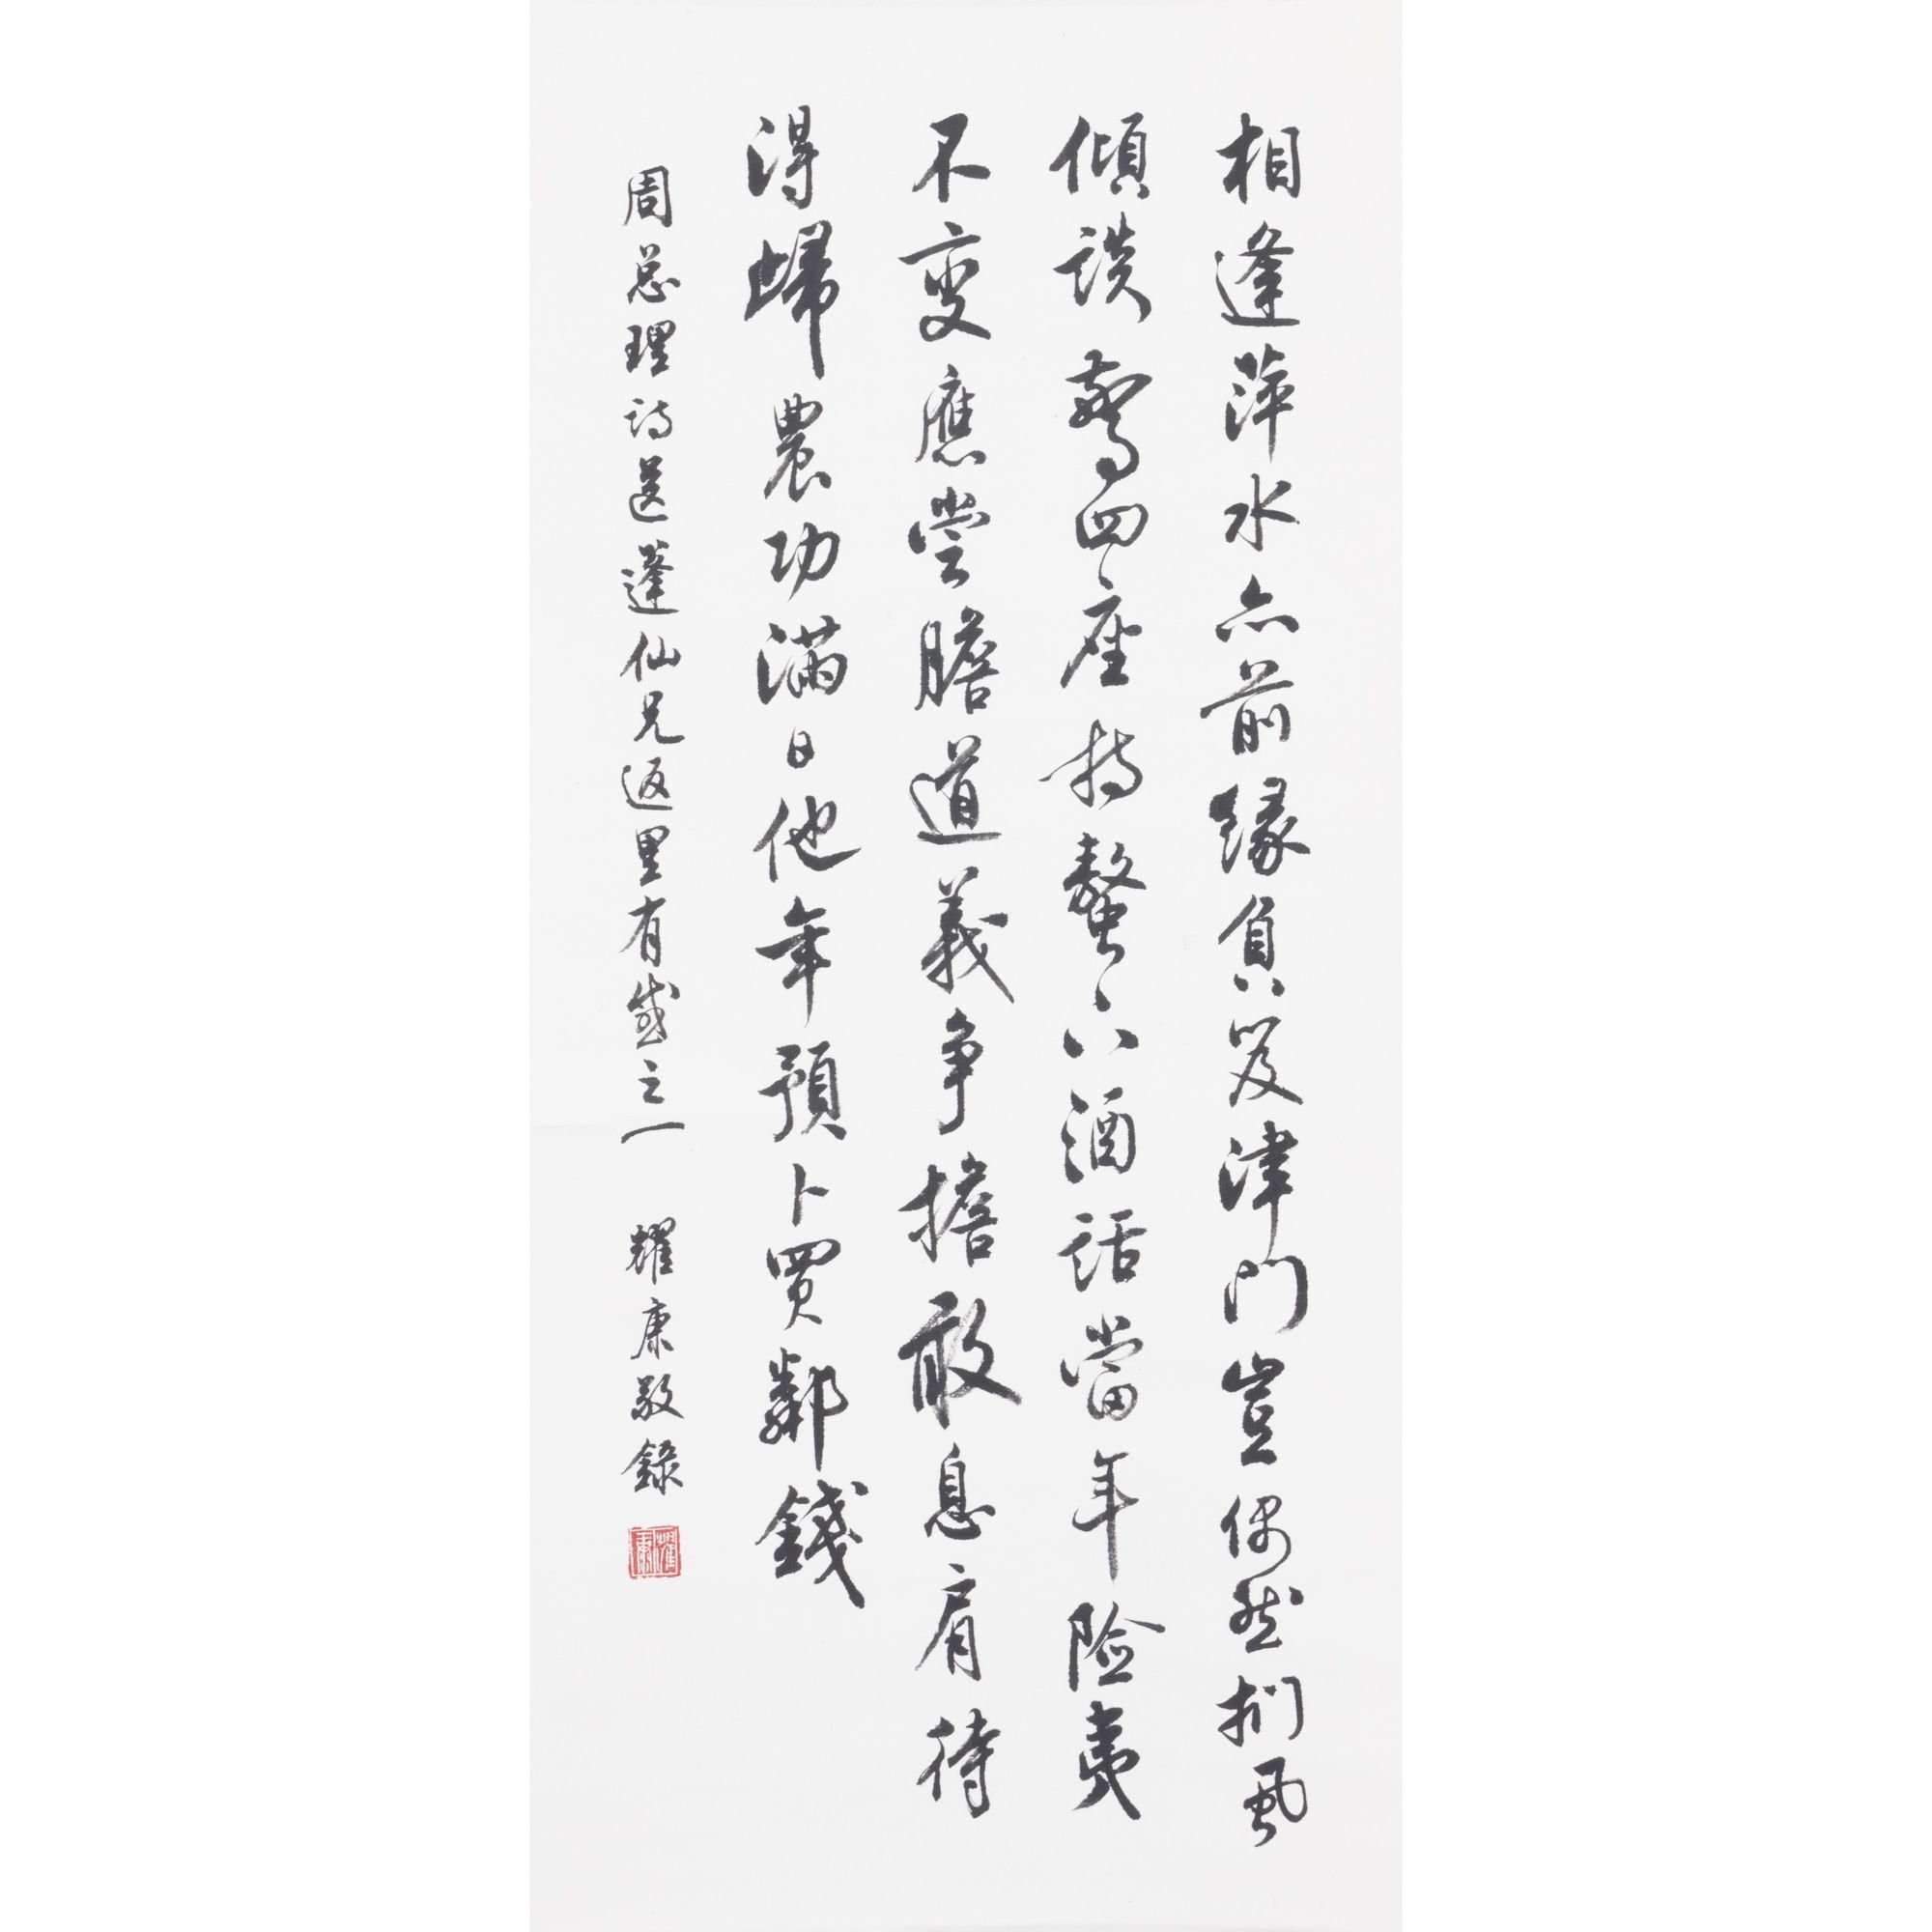 相逢萍水亦前緣負笈津門豈偶然捫虱
傾談驚四座持螯下酒話當年險夷
不變應嘗膽道義爭擔敢息肩待
得歸農功滿日他年預卜買鄰錢
周总理诗送蓬仙兄返里有感之一 耀康敬錄
耀康